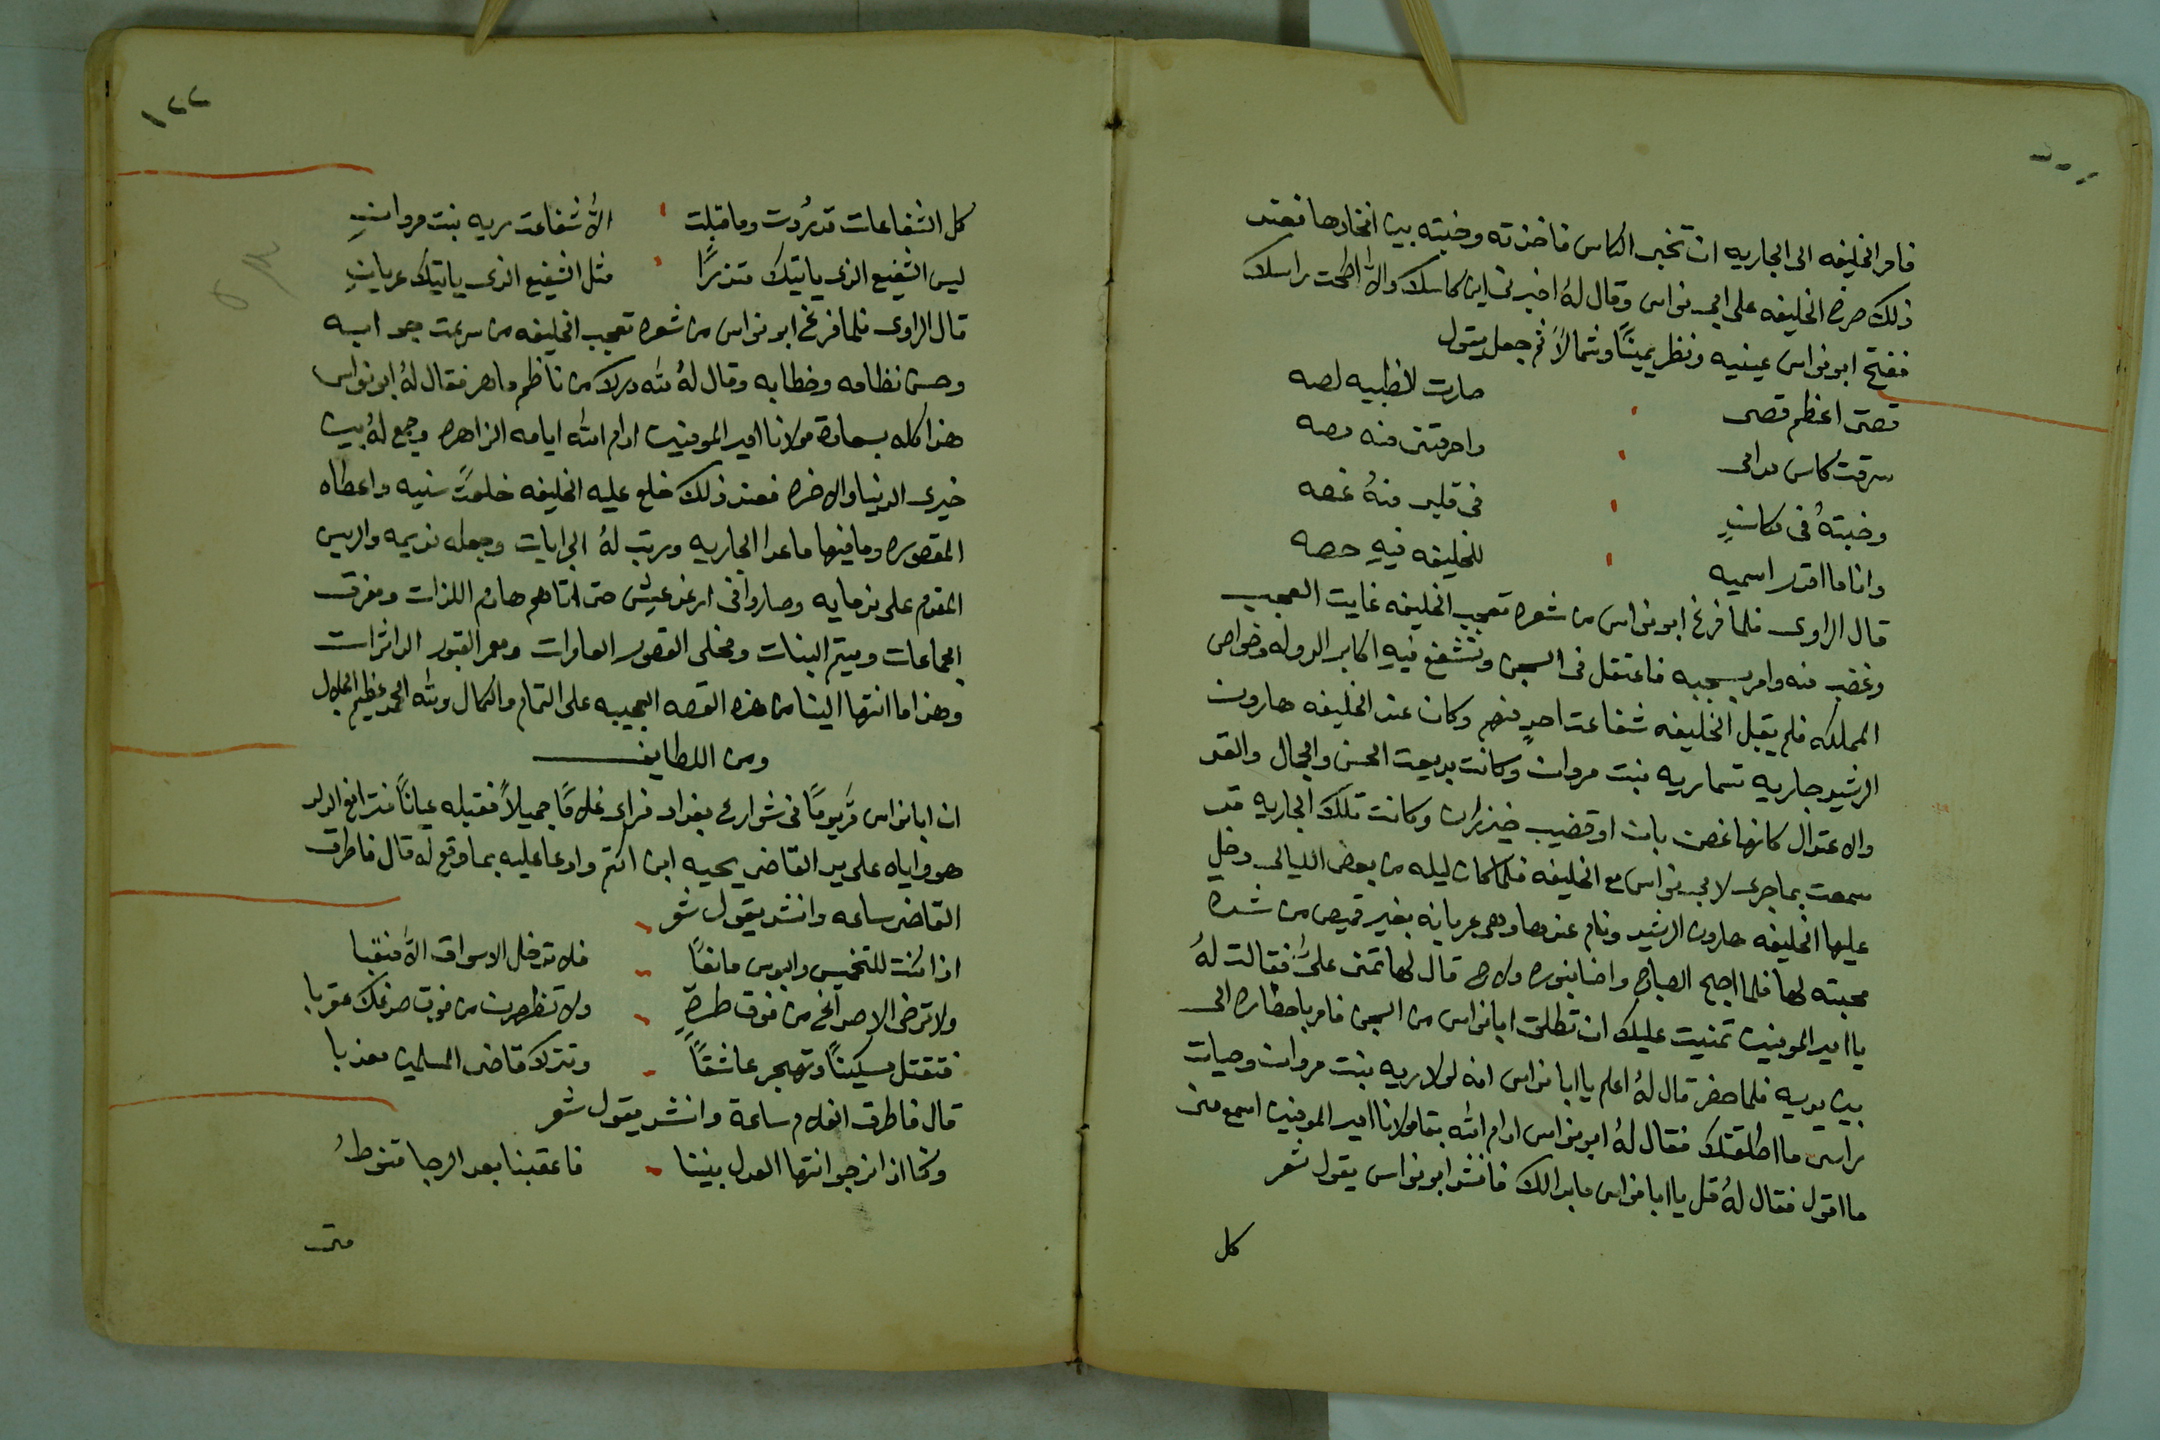 فامر الخليفه الى الجاريه ان تخبى الكاس فاخذته وخبته بين افخادها فعند
ذلك صرخ الخليفه على ابي نواس وقال لهُ اخبرني اين كاسك والّا اطحت براسك
ففتح ابو نواس عينيه ونظر يميناً وشمالاً ثم جعل يقول
قصتى اعظم قصى صارت لظبيه لصه
سرقتُ كاس مدامى واحرقتنى منه مصه
وخبتهُ فى مكانٍ فى قلبى منهُ غصه
وانا ما اقدر اسميه للخليفه فيهِ حصه
قال الراوى فلما فرغ ابو نواس من شعره تعجب الخليفه غايت العجب
وغضب منه وامر بسجنه فاعتقل فى السجن وتشفع فيهِ اكابر الدوله وخواص
المملكه فلم يقبل الخليفه شفاعت احدٍ منهم وكان عند الخليفه هارون
الرشيد جاريه تسما ريه بنت مروان وكانت بديعت الحسن والجمال والقد
والاعتدال كانها غصن بان او قضيب خيزران وكانت تلك الجاريه قد
سمعت بما جرى لابي نواس مع الخليفه فلما كان ليله من بعض الليالى دخل
عليها الخليفه هارون الرشيد ونام عندها وهى عريانه بغير قميص من شده
محبته لها فلما اصبح الصباح واضا بنوره ولاح قال لها تمنى علىَّ فقالت لهُ
يا امير المومنين تمنيت عليك ان تطلق ابا نواس من السجن فامر باحضاره الى
بين يديه فلما حضر قال لهُ اعلم يا ابا نواس انه لولا ريه بنت مروان وحيات
راسى ما اطلقتك فقال لهُ ابو نواس ادام الله بقا مولانا امير المومنين اسمع منى
ما اقول فقال لهُ قل يا ابا نواس ما بدالك فانشد ابو نواس يقول شعر
كل
١٢٢
كل الشفاعات قد رُدت وما قبلت الّا شفاعت ريه بنت مروانِ
ليس الشفيع الذى ياتيك متزرًا مثل الشفيع الذى ياتيك عريانِ
قال الراوى فلما فرغ ابو نواس من شعره تعجب الخليفه من سرعت جوابه
وحسن نظامه وخطابه وقال لهُ لله درك من ناظم ماهر فقال لهُ ابو نواس
هذا كله بسعادة مولانا امير المومنين ادام الله ايامه الزاهره وجمع لهُ بين
خيرى الدنيا والاخره فعند ذلك خلع عليه الخليفه خلعتً سنيه واعطاه
المقصوره وما فيها ما عدا الجاريه ورتب لهُ الجرايات وجعله نديمه والريس
المقدم على ندمايه وصاروا فى ارغد عيش حتى اتاهم هادم اللذات ومفرق
الجماعات وميتم البنات ومخلى القصور العامرات ومعمر القبور الداثرات
وهذا ما انتها الينا من هذه القصه العجيبه على التمام والكمال ولله الحمد عظيم الجلال
ومن اللطايف
ان ابا نواس مرَّ يومًا فى شوارع بغداد فراى غلامًا جميلاً فقبله عيانًا فترافع الولد
هو واياه على يد القاضى يحيه ابن اكثم وادعا عليه بما وقع له قال فاطرق
القاضى ساعه وانشد يقول شعر
اذا كنت للتخميس والبوس مانعًا فلا تدخل الاسواق الّا منقبا
ولا ترخى الاصداغ من فوق طرةٍ ولا تظهرن من فوق صدغك عقربا
فتقتل مسكينًا وتهجر عاشقًا وتترك قاضى المسلمين معذبا
قال فاطرق الغلام ساعة وانشد يقول شعر
وكنا اذا نرجو انتها العدل بيننا فاعقبنا بعد الرجا قنوطُ
متى